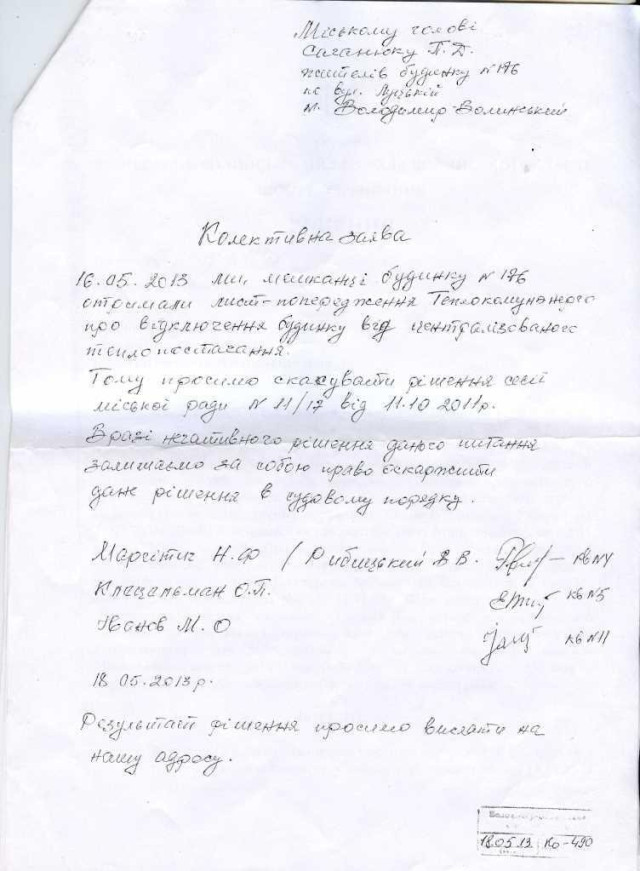 Міському голові
Саганюку П. Д.
жителів будинку № 176
по вул. Луцькій
м. Володимир-Волинський
Колективна заява
16.05.2013 ми, мешканці будинку № 176
отримали лист-попередження Теплокомуненерго
про відключення будинку від централізованого
теплопостачання.
Тому просимо скасувати рішення сесії
міської ради № 11/17 від 11.10 2011р.
В разі негативного рішення даного питання
залишаємо за собою право оскаржити
дане рішення в судовому порядку.
Н. Ф / Рибицький В В. кв №4
О.П. кв №5
Іванов М. О кв №11
18 05.2013 р.
Результати рішення просимо вислати на
нашу адресу.
18.05.13 Ко-490